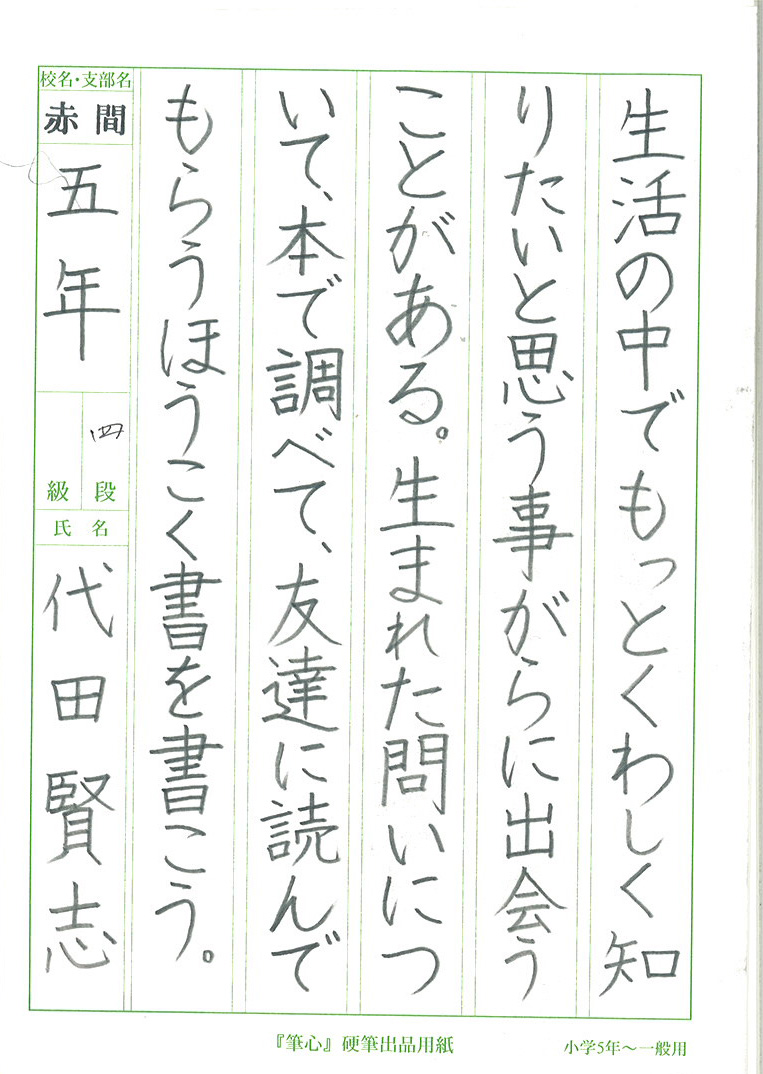 生活の中でもっとくわしく知
りたいと思う事がらに出会う
ことがある。生まれた問いにつ
いて、本で調べて、友達に読んで
もらうほうこく書を書こう。
校名・支部名
赤間
五年
四
級 段
氏名
代田賢志
『筆心』硬筆出品用紙
小学5年〜一般用